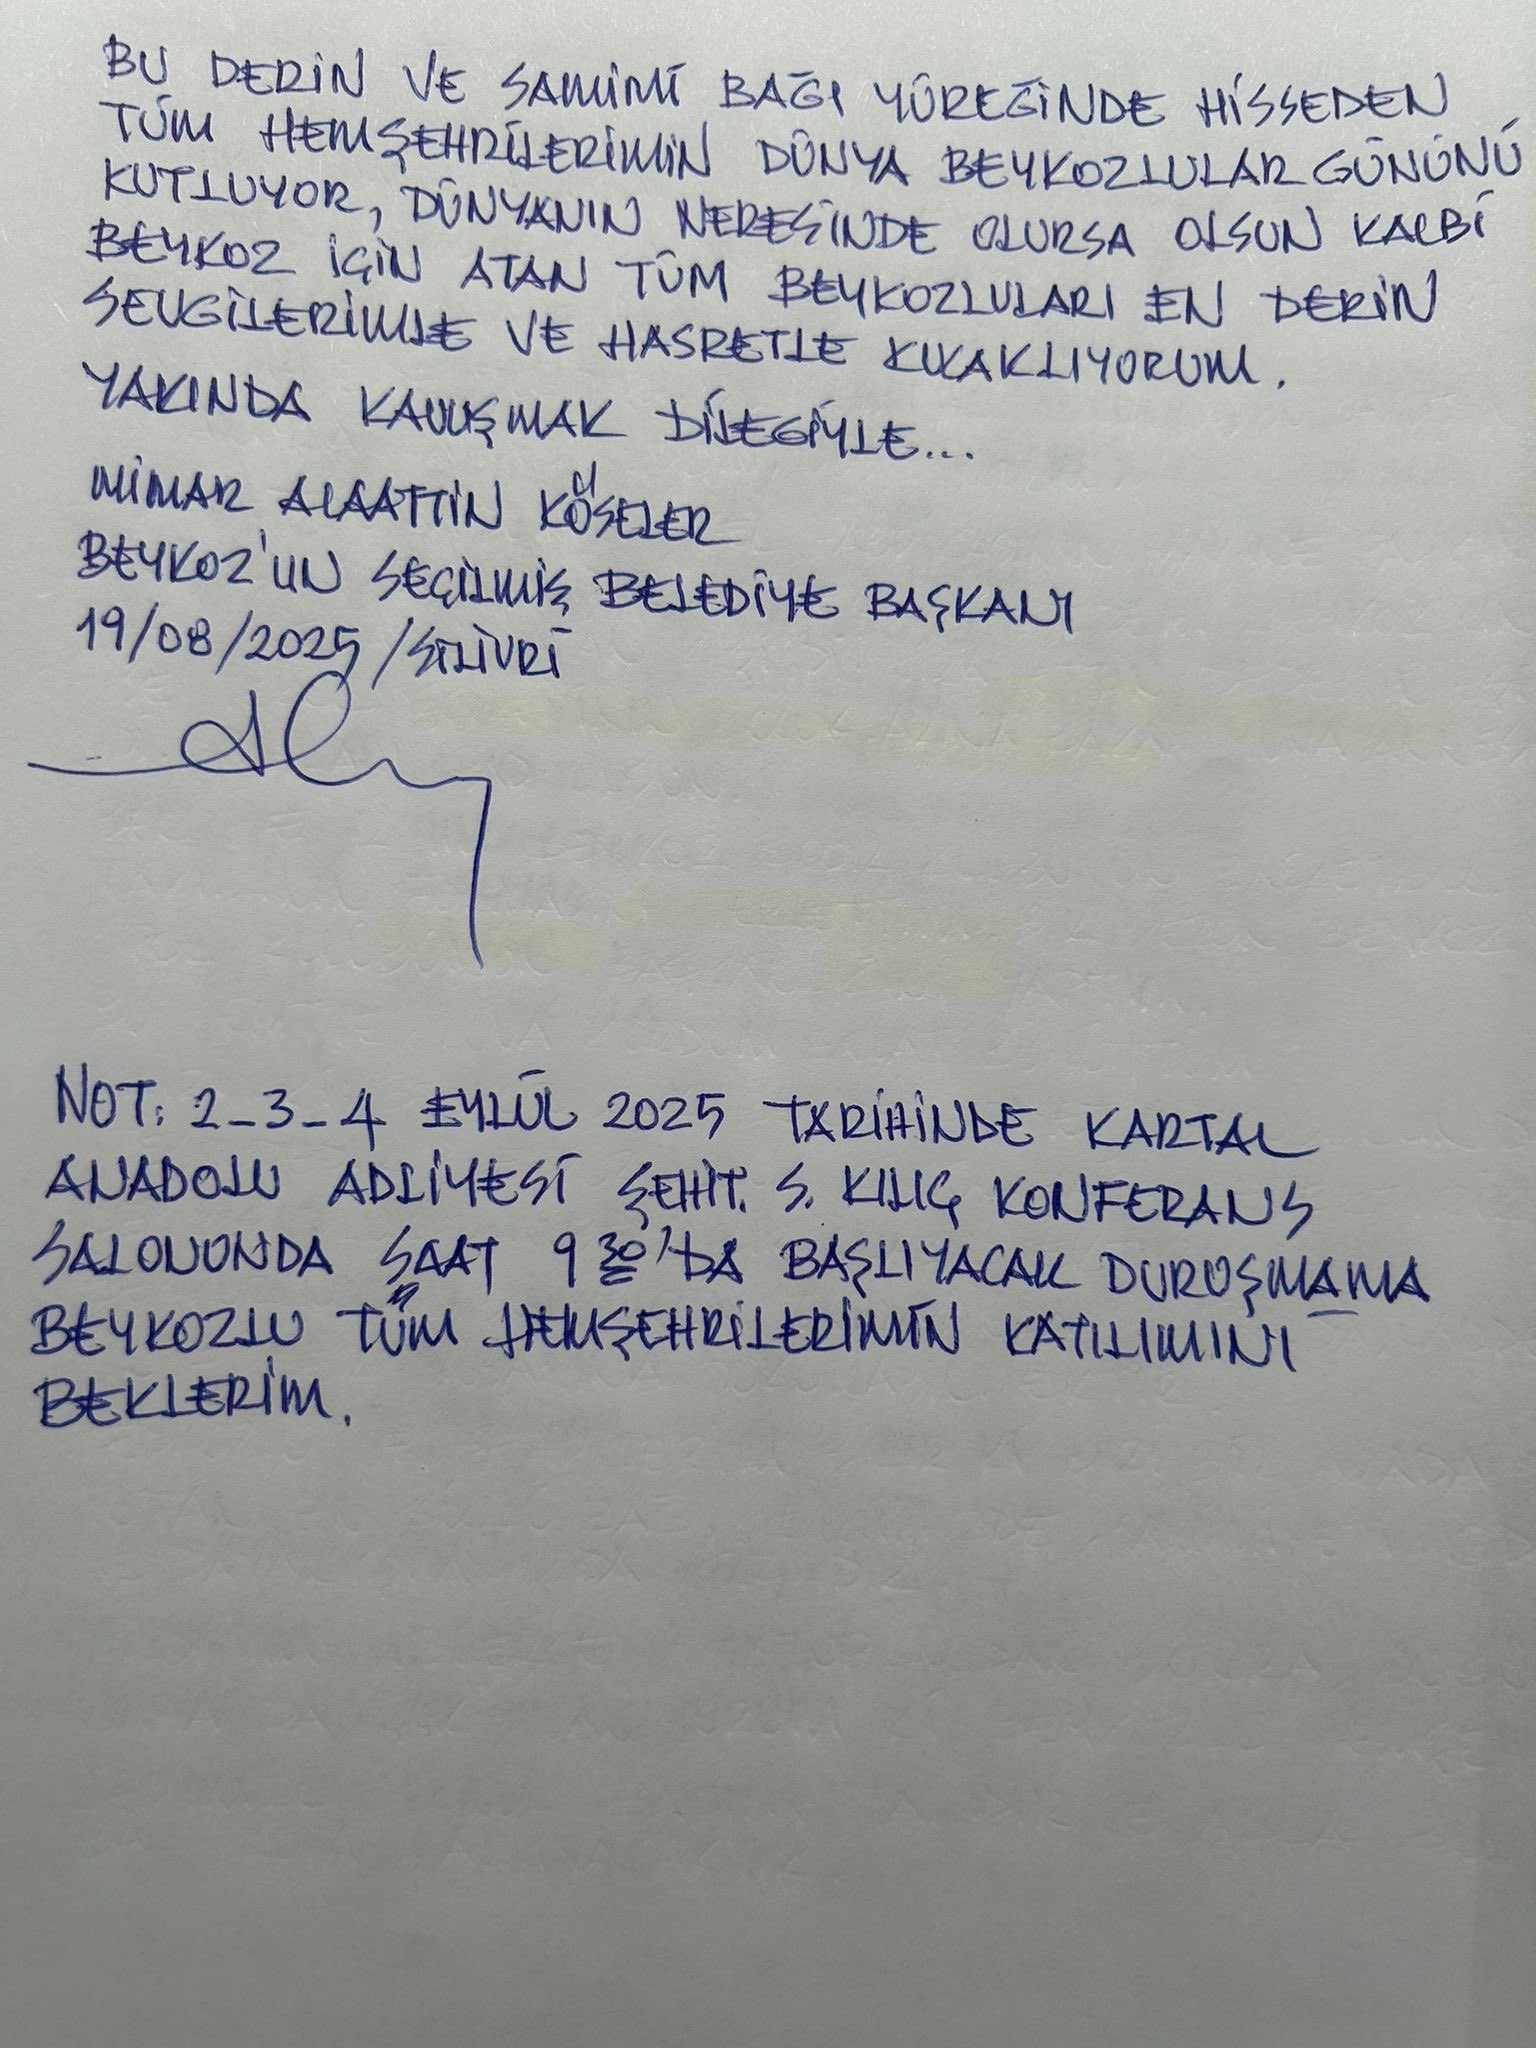 BU DERİN VE SAMİMİ BAĞI YÜREĞİNDE HİSSEDEN
TÜM HEMŞEHRİLERİMİN DÜNYA BEYKOZLULAR GÜNÜNÜ
KUTLUYOR, DÜNYANIN NERESİNDE OLURSA OLSUN KALBİ
BEYKOZ İÇİN ATAN TÜM BEYKOZLULARI EN DERİN
SEVGİLERİMLE VE HASRETLE KUCAKLIYORUM.
YAKINDA KAVUŞMAK DİLEGİYLE...
MİMAR ALAATTİN KÖSELER
BEYKOZ'UN SEÇİLMİŞ BELEDİYE BAŞKANI
19/08/2025/SİLİVRİ
NOT: 2-3-4 EYLÜL 2025 TARİHİNDE KARTAL
ANADOLU ADLİYESİ ŞEHİT. S. KILIÇ KONFERANS
SALONUNDA SAAT 9 30'DA BAŞLIYACAK DURUŞMAMA
BEYKOZLU TÜM HEMŞEHRİLERİMİN KATILIMINI
BEKLERİM.